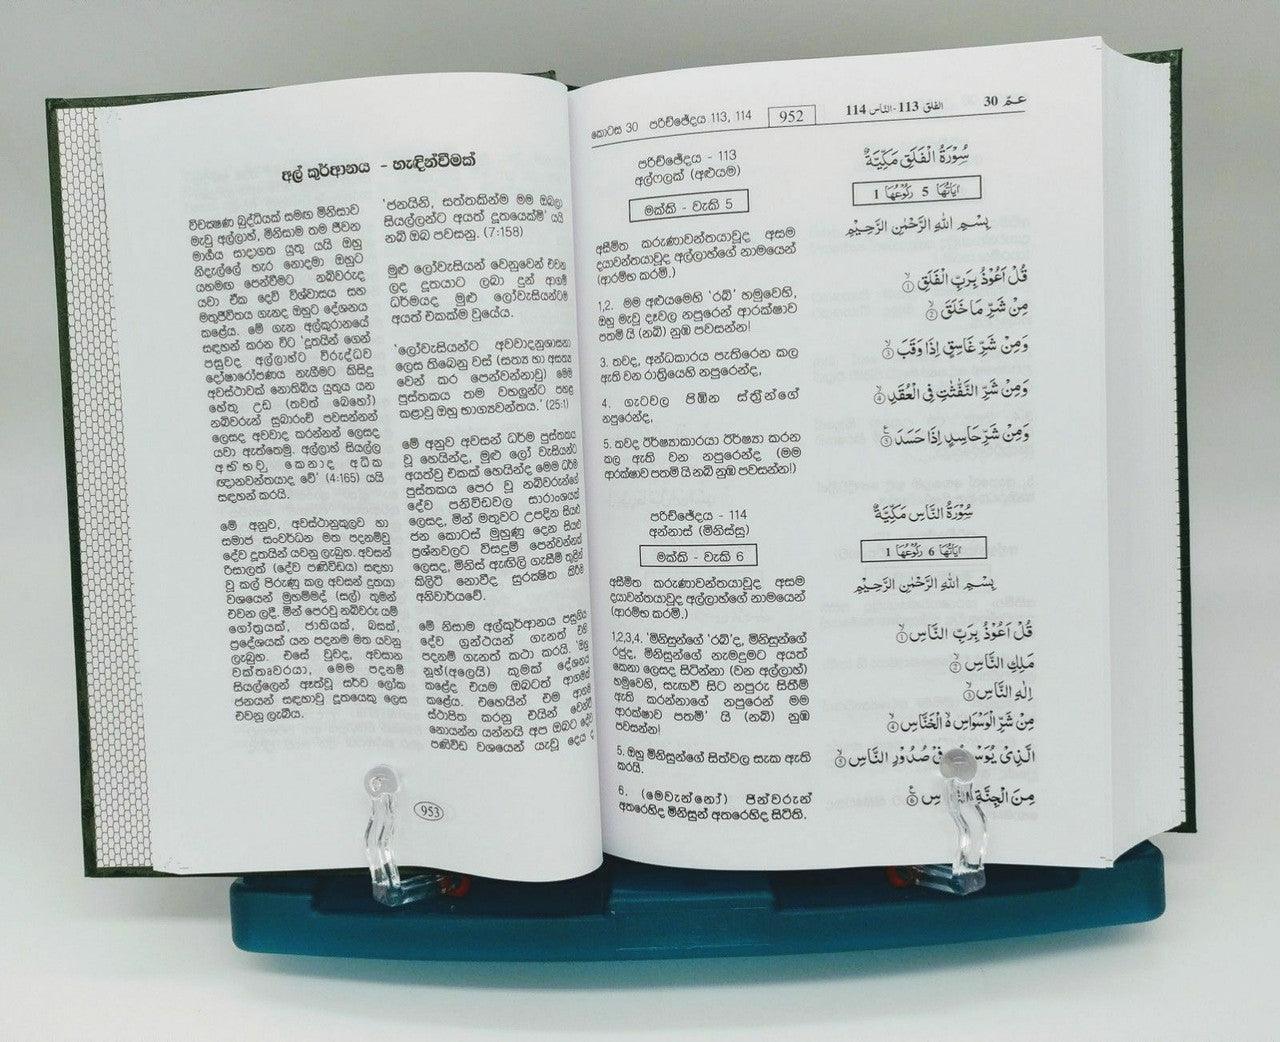 අල් කුර්ආනය – හැඳින්වීමක්
විචක්ෂණ බුද්ධියක් සමඟ මිනිසාව
මැවූ අල්ලාහ්, මිනිසාම තම ජීවන
මාර්ගය සාදාගත යුතු යයි ඔහු
නිදැල්ලේ හැර නොදමා ඔහුට
යහමඟ පෙන්වීමට නබිවරුද
යවා ඒක දෙව් විශ්වාසය සහ
මතුජීවිතය ගැනද ඔහුට දේශනය
කළේය. මේ ගැන අල්කුරානයේ
සඳහන් කරන විට 'දූතයින් ගෙන්
පසුවද අල්ලාහ්ට විරුද්ධව
දෝෂාරෝපණය නැඟීමට කිසිදු
අවස්ථාවක් නොතිබිය යුතුය යන
හේතු උඩ (තවත් බෙහෝ)
නබිවරුන් සුබාරංචි පවසන්නන්
ලෙසද අවවාද කරන්නන් ලෙසද
යවා ඇත්තෙමු. අල්ලාහ් සියල්ල
අභිභවූ කෙනාද අධික
ඥානවන්තයාද වේ' (4:165) යයි
සඳහන් කරයි.
මේ අනුව, අවස්ථානුකූලව හා
සමාජ සංවර්ධන මත පදනම්වූ
දේව දූතයින් යවනු ලැබූහ. අවසන්
රිසාලත් (දේව පණිවිඩය) සඳහා
වූ කල් පිරුණු කල අවසන් දූතයා
වශයෙන් මුහම්මද් (සල්) තුමන්
එවන ලදී. මින් පෙරවූ නබිවරු යම්
ගෝත්‍රයක්, ජාතියක්, බසක්,
ප්‍රදේශයක් යන පදනම මත යවනු
ලැබූහ. එසේ වුවද, අවසාන
වක්තෘවරයා, මෙම පදනම්
සියල්ලෙන් ඈත්වූ සර්ව ලෝක
ජනයන් සඳහාවූ දූතයෙකු ලෙස
එවනු ලැබීය.
'ජනයිනි, සත්තකින්ම මම ඔබලා
සියල්ලන්ට අයත් දූතයෙක්මි' යයි
නබි ඔබ පවසනු. (7:158)
මුළු ලෝවැසියන් වෙනුවෙන් එවන
ලද දූතයාට ලබා දුන් ආගම්
ධර්මයද මුළු ලෝවැසියන්ටම
අයත් එකක්ම වූයේය.
'ලෝවැසියන්ට අවවාදානුශාසනා
ලෙස තිබෙනු වස් (සත්‍ය හා අසත්‍ය
වෙන් කර පෙන්වන්නාවූ) මෙම
පුස්තකය තම වහලුන්ට පහළ
කළාවූ ඔහු භාග්‍යවන්තය.' (25:1)
මේ අනුව අවසන් ධර්ම පුස්තකය
වූ හෙයින්ද, මුළු ලෝ වැසියන්ට
අයත්වූ එකක් හෙයින්ද මෙම ධර්ම
පුස්තකය පෙර වූ නබිවරුන්ගේ
දේව පනිවිඩවල සාරාංශයක්
ලෙසද, මින් මතුවට උපදින සියළු
ජන කොටස් මුහුණු දෙන සියළු
ප්‍රශ්නවලට විසඳුම් පෙන්වන්නක්
ලෙසද, මිනිස් ඇඟිලි ගැසීම් තුළින්
කිලිටි නොවීද සුරක්ෂිත කිරීම
අනිවාර්යවේ.
මේ නිසාම අල්කුර්ආනය පසුගිය
දේව ග්‍රන්ථයන් ගැනත් එහි
පදනම් ගැනත් කථා කරයි. 'ඔහු
නූහ්(අලෙයි) කුමක් දේශනය
කළේද එයම ඔබටත් ආගමක්
කළේය. එහෙයින් එම ආගම
ස්ථාපිත කරනු එයින් වෙන්වී
නොයන්න යන්නයි අප ඔබට දේව
පණිවිඩ වශයෙන් යැවූ දෙය ද
953
කොටස 30 පරිච්ඡේදය 113, 114 952 الفلق 113 - النَّاس 114 عـمّ 30
පරිච්ඡේදය - 113
අල්ෆලක් (අළුයම)
මක්කි - වැකි 5
අසීමිත කරුණාවන්තයාවූද අසම
දයාවන්තයාවූද අල්ලාහ්ගේ නාමයෙන්
(ආරම්භ කරමි.)
1,2. මම අළුයමෙහි 'රබ්' හමුවෙහි,
ඔහු මැවූ දෑවල නපුරෙන් ආරක්ෂාව
පතමි යි (නබි) නුඹ පවසන්න!
3. තවද, අන්ධකාරය පැතිරෙන කල
ඇති වන රාත්‍රියෙහි නපුරෙන්ද,
4. ගැටවල පිඹින ස්ත්‍රීන්ගේ
නපුරෙන්ද,
5. තවද ඊර්ෂ්‍යාකාරයා ඊර්ෂ්‍යා කරන
කල ඇති වන නපුරෙන්ද (මම
ආරක්ෂාව පතමි යි නබි නුඹ පවසන්න!)
පරිච්ඡේදය - 114
අන්නාස් (මිනිස්සු)
මක්කි - වැකි 6
අසීමිත කරුණාවන්තයාවූද අසම
දයාවන්තයාවූද අල්ලාහ්ගේ නාමයෙන්
(ආරම්භ කරමි.)
1,2,3,4. 'මිනිසුන්ගේ 'රබ්'ද, මිනිසුන්ගේ
රජුද, මිනිසුන්ගේ නැමදුමට අයත්
කෙනා ලෙසද සිටින්නා (වන අල්ලාහ්)
හමුවෙහි, සැඟවී සිට නපුරු සිතීම්
ඇති කරන්නාගේ නපුරෙන් මම
ආරක්ෂාව පතමි' යි (නබි) නුඹ
පවසන්න!
5. ඔහු මිනිසුන්ගේ සිත්වල සැක ඇති
කරයි.
6. (මෙවැන්නෝ) ජින්වරුන්
අතරෙහිද මිනිසුන් අතරෙහිද සිටිති.
سُوْرَةُ الْفَلَقِ مَكِّيَّةٌ
اٰيَاتُهَا 5 رُكُوْعُهَا 1
بِسْمِ اللّٰهِ الرَّحْمٰنِ الرَّحِيْمِ
قُلْ اَعُوْذُ بِرَبِّ الْفَلَقِ ۙ①
مِنْ شَرِّ مَا خَلَقَ ۙ②
وَمِنْ شَرِّ غَاسِقٍ اِذَا وَقَبَ ۙ③
وَمِنْ شَرِّ النَّفّٰثٰتِ فِى الْعُقَدِ ۙ④
وَمِنْ شَرِّ حَاسِدٍ اِذَا حَسَدَ ⑤
سُوْرَةُ النَّاسِ مَكِّيَّةٌ
اٰيَاتُهَا 6 رُكُوْعُهَا 1
بِسْمِ اللّٰهِ الرَّحْمٰنِ الرَّحِيْمِ
قُلْ اَعُوْذُ بِرَبِّ النَّاسِ ۙ①
مَلِكِ النَّاسِ ۙ②
اِلٰهِ النَّاسِ ۙ③
مِنْ شَرِّ الْوَسْوَاسِ ۙ الْخَنَّاسِ ④
الَّذِىْ فِىْ صُدُوْرِ النَّاسِ ۙ⑤
مِنَ الْجِنَّةِ ⑥